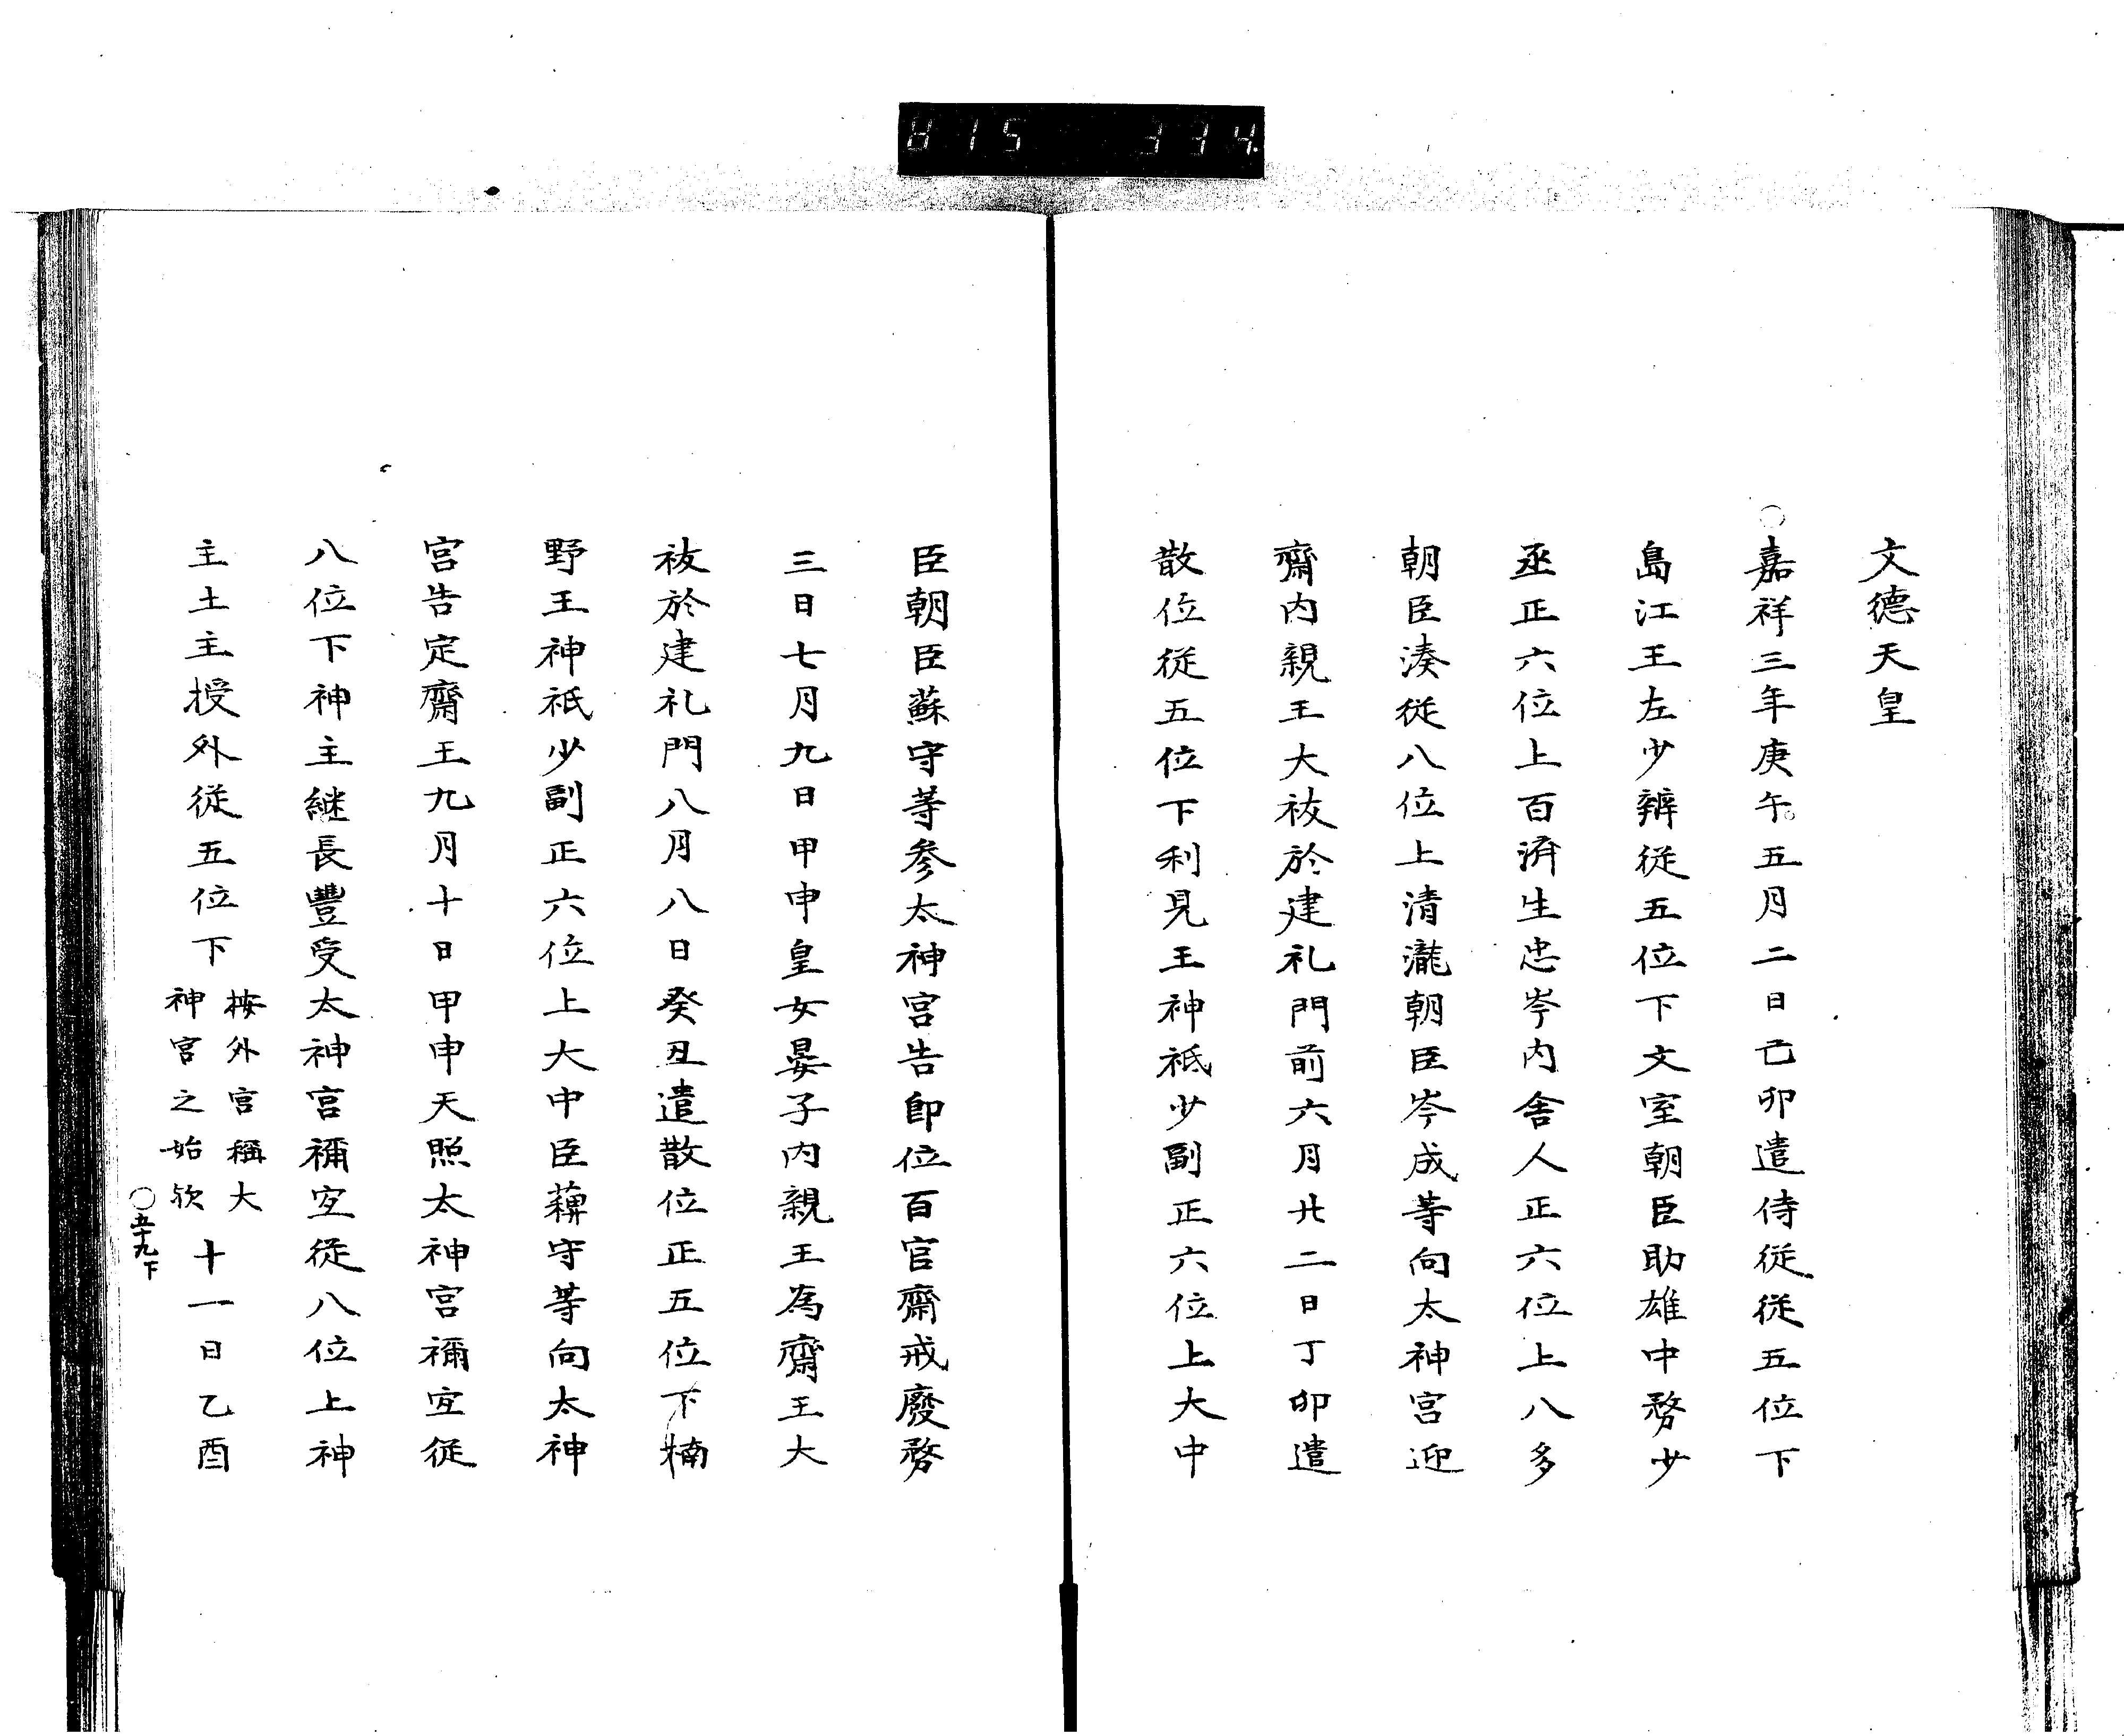 815 334
文德天皇
○嘉祥三年庚午。五月二日己卯遣侍從從五位下
島江王左少辨從五位下文室朝臣助雄中務少
丞正六位上百濟生忠岑内舍人正六位上八多
朝臣湊從八位上清瀧朝臣岑成等向太神宮迎
齋内親王大祓於建礼門前六月廿二日丁卯遣
散位從五位下利見王神祇少副正六位上大中
臣朝臣蘇守等参太神宮告即位百官齋戒廢務
三日七月九日甲申皇女晏子内親王為齋王大
祓於建礼門八月八日癸丑遣散位正五位下楠
野王神祇少副正六位上大中臣蘓守等向太神
宮告定齋王九月十日甲申天照太神宮禰宜從
八位下神主継長豐受太神宮禰宜從八位上神
主土主授外從五位下按外宮稱大神宮之始欤十一日乙酉
○五十九下